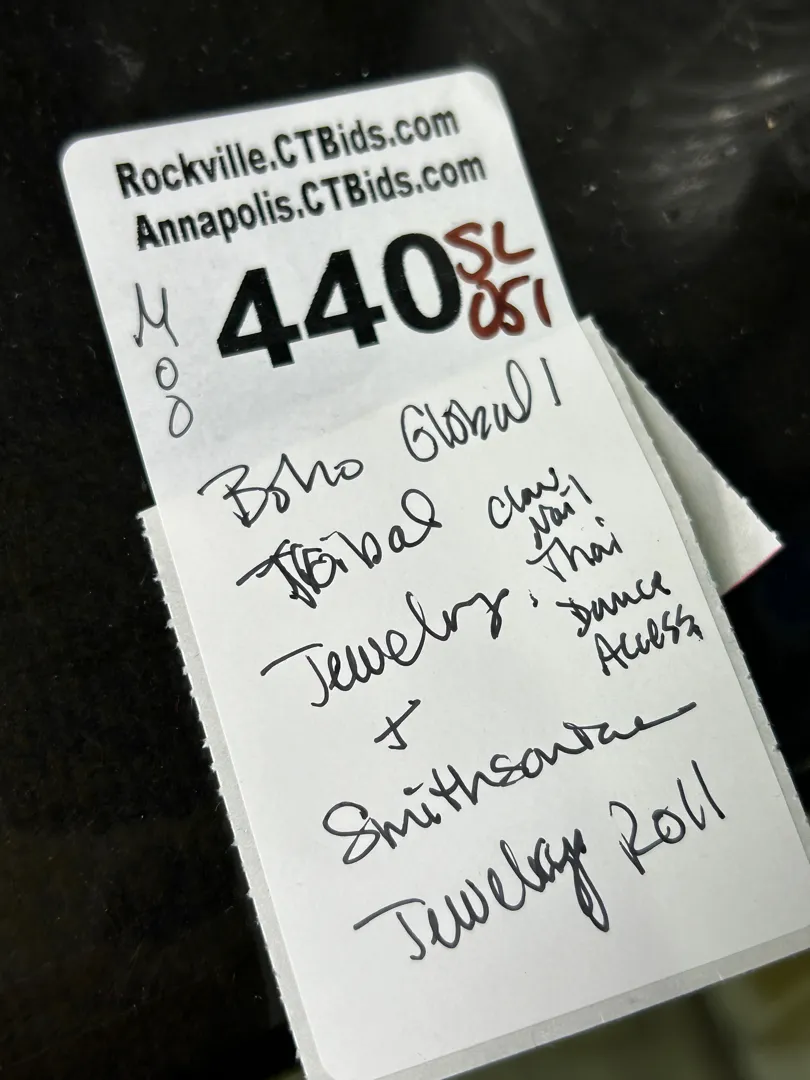 Rockville.CTBids.com
Annapolis.CTBids.com
440
SL
051
M
O
O
Boho Global /
Tribal
Jewelry,
Claw
Nail
Thai
Dance
Access
+
Smithsonian
Jewelry Roll